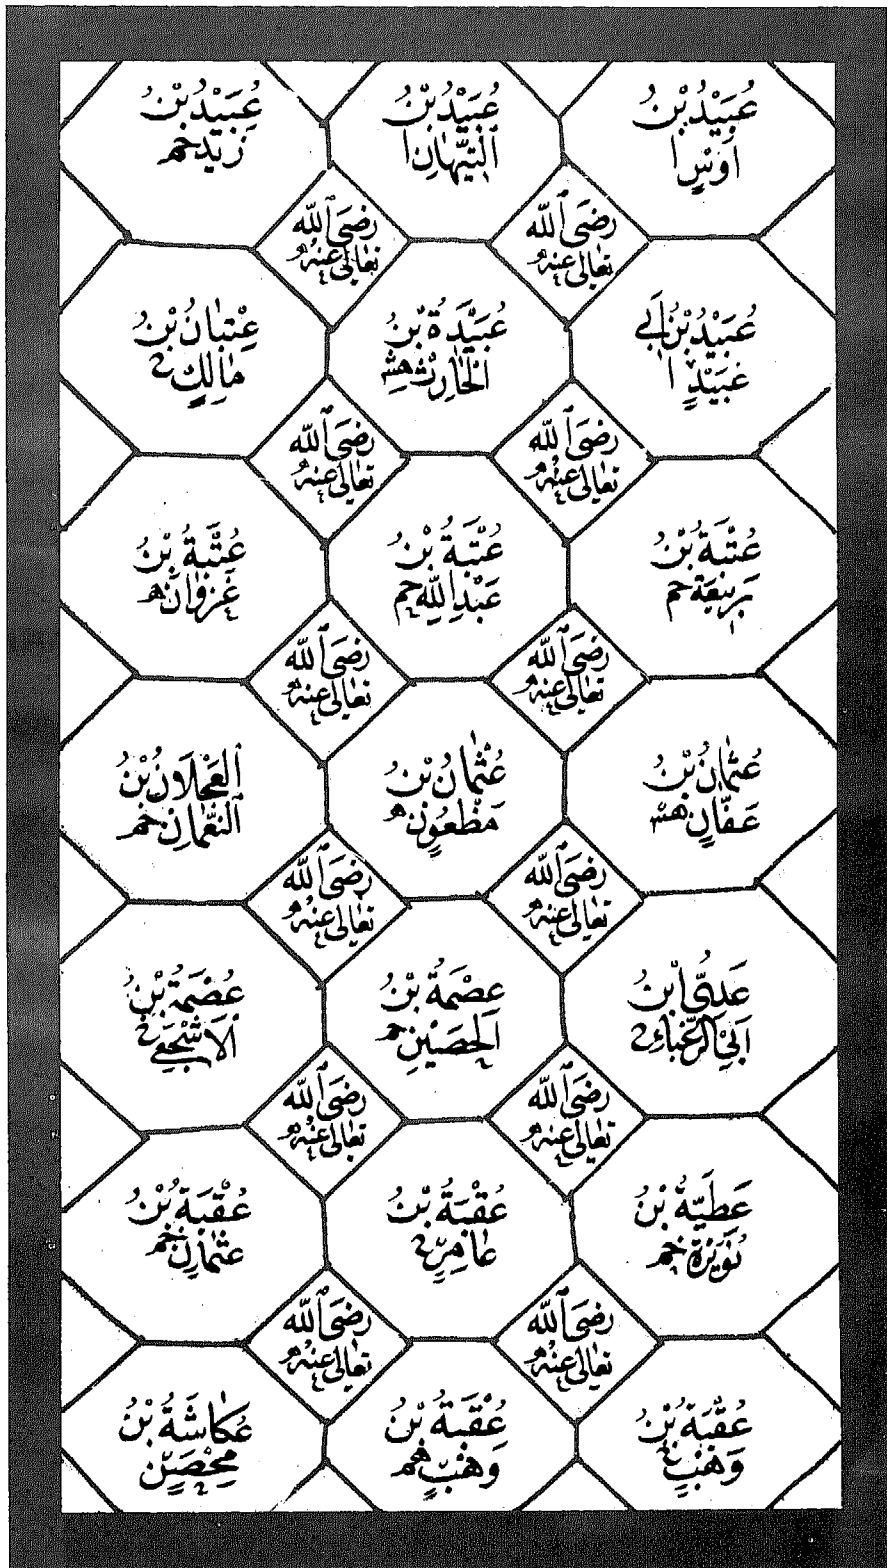 عُبَيْدُ بْنُ
اَوْسٍ ا
عُبَيْدُ بْنُ
التَّيِّهَانِ ا
عُبَيْدُ بْنُ
زَيْدٍ خم
رَضِیَ اللّٰه
تَعَالٰی عَنْهُ
رَضِیَ اللّٰه
تَعَالٰی عَنْهُ
عُبَيْدُ بْنُ اَبِي
عُبَيْدٍ ا
عُبَيْدَةُ بْنُ
الْحَارِثِ هش
عِتْبَانُ بْنُ
مَالِكٍ
رَضِیَ اللّٰه
تَعَالٰی عَنْهُ
رَضِیَ اللّٰه
تَعَالٰی عَنْهُ
عُتْبَةُ بْنُ
رَبِيْعَةَ خم
عُتْبَةُ بْنُ
عَبْدِ اللّٰهِ خم
عُتْبَةُ بْنُ
غَزْوَانَ
رَضِیَ اللّٰه
تَعَالٰی عَنْهُ
رَضِیَ اللّٰه
تَعَالٰی عَنْهُ
عُثْمَانُ بْنُ
عَفَّانَ هش
عُثْمَانُ بْنُ
مَظْعُوْنٍ
الْعَجْلَانُ بْنُ
النُّعْمَانِ خم
رَضِیَ اللّٰه
تَعَالٰی عَنْهُ
رَضِیَ اللّٰه
تَعَالٰی عَنْهُ
عَدِيُّ ابْنُ
اَبِي الزَّغْبَاءِ
عِصْمَةُ بْنُ
الْحُصَيْنِ خم
عُصَيْمَةُ بْنُ
الْاَشْجَعِيُّ
رَضِیَ اللّٰه
تَعَالٰی عَنْهُ
رَضِیَ اللّٰه
تَعَالٰی عَنْهُ
عَطِيَّةُ بْنُ
نُوَيْرَةَ خم
عُقْبَةُ بْنُ
عَامِرٍ
عُقْبَةُ بْنُ
عُثْمَانَ خم
رَضِیَ اللّٰه
تَعَالٰی عَنْهُ
رَضِیَ اللّٰه
تَعَالٰی عَنْهُ
عُقْبَةُ بْنُ
وَهْبٍ
عُقْبَةُ بْنُ
وَهْبٍ
عُكَاشَةُ بْنُ
مِحْصَنٍ